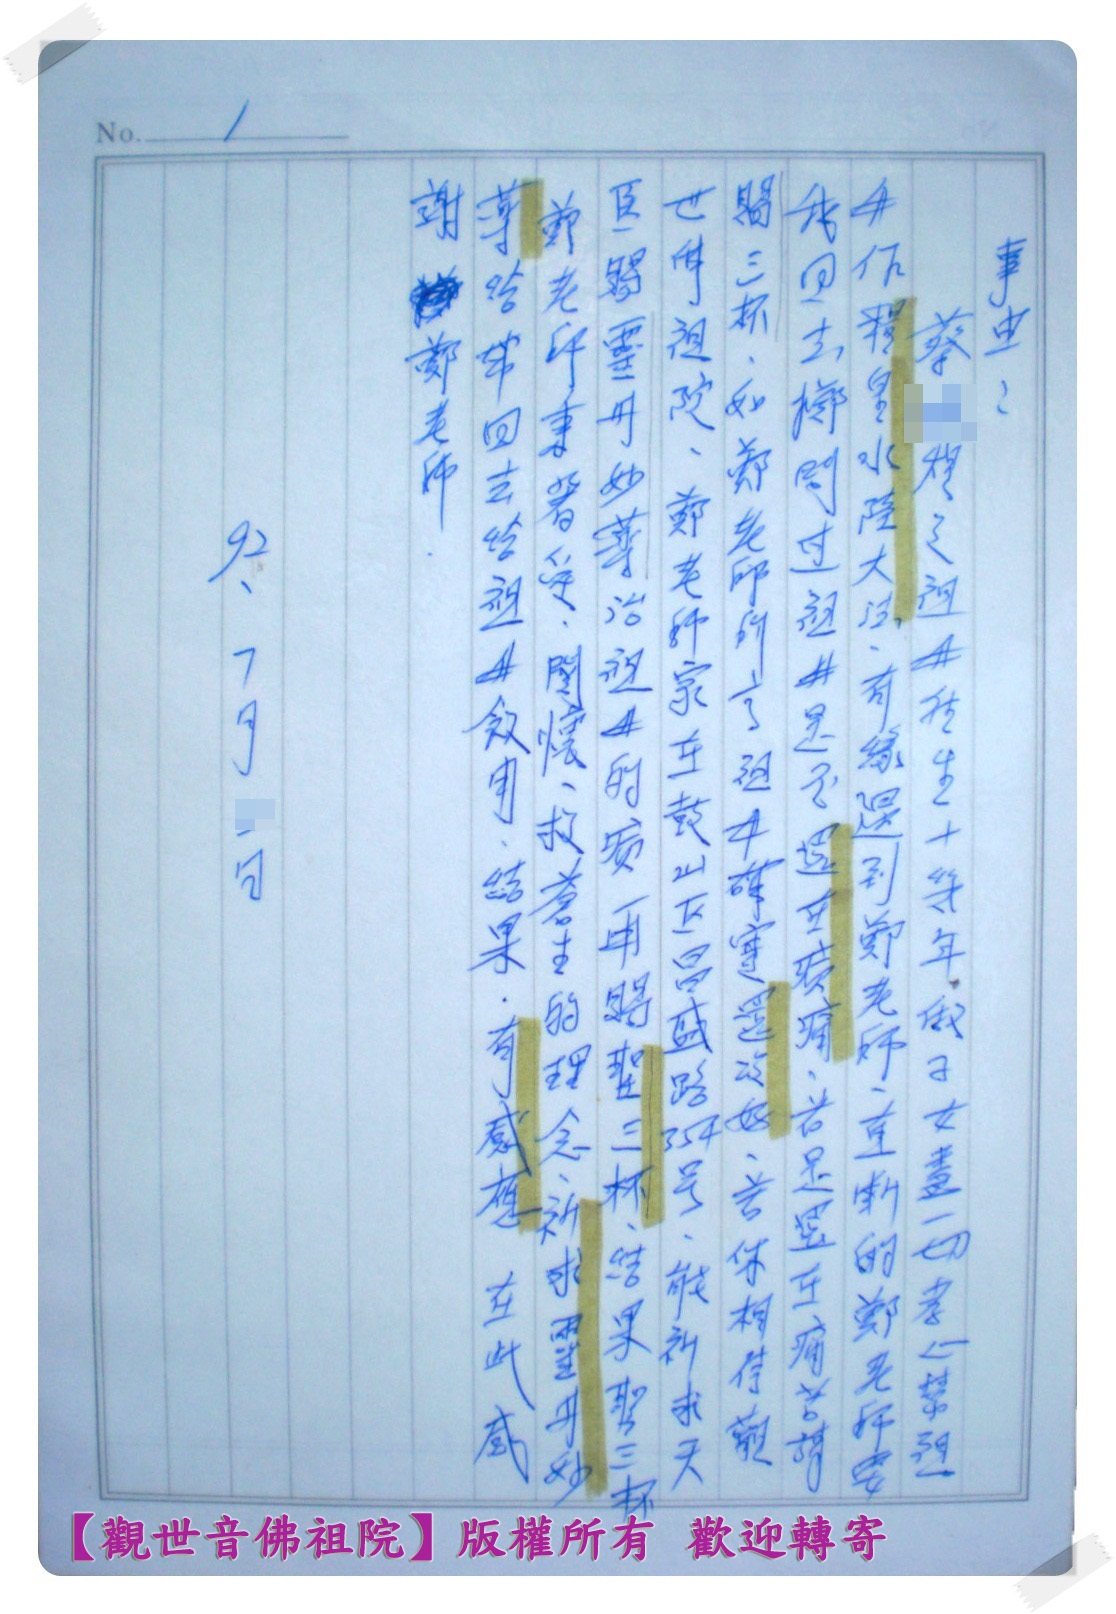 No. 1
事由：
蔡 之祖母往生十幾年做子女盡一切孝心幫祖
母作 皇水陸大法、有緣遇到鄭老師、直斷的鄭老師要
我回去擲問过祖母是否還在病痛、若是還在痛苦請
賜三杯、如鄭老師所言祖母確實還沒好、若你相信觀
世音佛祖院、鄭老師家在鼓山区昌盛路354号、能祈求天
臣賜靈丹妙藥治祖母的病再賜聖三杯、結果聖三杯
鄭老師秉著 、關懷、救蒼生的理念、祈求靈丹妙
藥給 帶回去給祖母飲用、結果、有感應 在此感
謝 鄭老師.
92、7月 日
【觀世音佛祖院】版權所有 歡迎轉寄